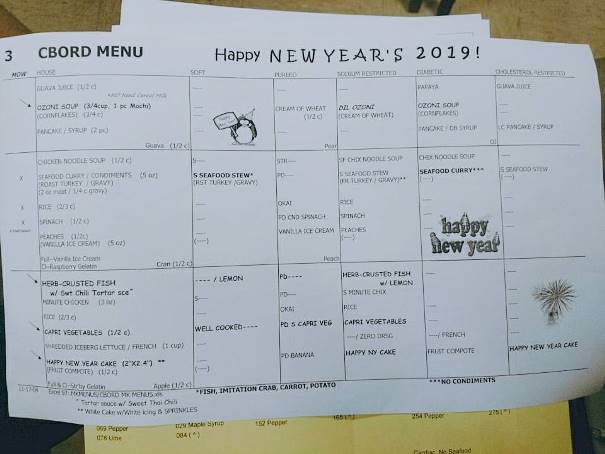 3 CBORD MENU Happy NEW YEAR'S 2019!
MOW HOUSE SOFT PUREED SODIUM RESTRICTED DIABETIC CHOLESTEROL RESTRICTED
GUAVA JUICE (1/2 c) ---- ---- ---- PAPAYA GUAVA JUICE
OZONI SOUP (3/4cup, 1 pc Mochi) CREAM OF WHEAT DIL OZONI OZONI SOUP
(CORNFLAKES) (3/4 c) (1/2 c) (CREAM OF WHEAT) (CORNFLAKES)
PANCAKE / SYRUP (2 pc) PANCAKE / DB SYRUP LC PANCAKE / SYRUP
Guava (1/2 c) Pear
CHICKEN NOODLE SOUP (1/2 c) S---- STR---- SF CHIX NOODLE SOUP CHIX NOODLE SOUP ----
X SEAFOOD CURRY / CONDIMENTS (5 oz) S SEAFOOD STEW* PD---- S SEAFOOD STEW SEAFOOD CURRY*** S SEAFOOD STEW
(ROAST TURKEY / GRAVY) (RST TURKEY /GRAVY) (RST TURKEY / GRAVY)** (----) (----)
(2 oz meat / 1/4 c gravy)
X RICE (2/3 c) ---- OKAI RICE
X SPINACH (1/2 c) ---- PD CND SPINACH SPINACH
PEACHES (1/2c) ---- VANILLA ICE CREAM PEACHES
(VANILLA ICE CREAM) (5 oz) (----) (----)
happy new year
Full-Vanilla Ice Cream
D-Raspberry Gelatin Cran (1/2 c) Peach
HERB-CRUSTED FISH ---- / LEMON PD---- HERB-CRUSTED FISH ----
w/ Swt Chili Tartar sce^ w/ LEMON
MINUTE CHICKEN (3 oz) S---- PD---- S MINUTE CHIX
RICE (2/3 c) ---- OKAI RICE
CAPRI VEGETABLES (1/2 c) WELL COOKED---- PD S CAPRI VEG CAPRI VEGETABLES
SHREDDED ICEBERG LETTUCE / FRENCH (1 cup) ---- ----/ ZERO DRSG ----/ FRENCH
HAPPY NEW YEAR CAKE (2"X2.4") ** ---- PD BANANA HAPPY NY CAKE FRUIT COMPOTE HAPPY NEW YEAR CAKE
(FRUIT COMPOTE) (1/2 c) (----)
Full & D-Strby Gelatin Apple (1/2 c)
*FISH, IMITATION CRAB, CARROT, POTATO ***NO CONDIMENTS
^ Tartar sauce w/ Sweet Thai Chili
** White Cake w/White Icing & SPRINKLES
069 Pepper 029 Maple Syrup 152 Pepper 254 Pepper
076 Lime 084 (^)
Cardiac No Seafood